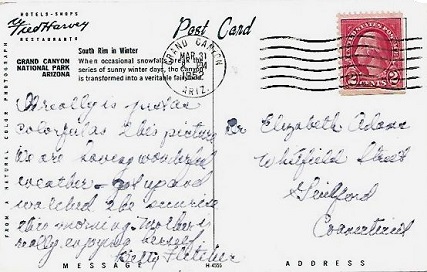 HOTELS - SHOPS
Fred Harvey
RESTAURANTS
Post Card
GRAND CANYON
NATIONAL PARK
ARIZONA
South Rim in Winter
When occasional snowfalls break the
series of sunny winter days, the Canyon
is transformed into a veritable fairyland.
FROM A NATURAL COLOR PHOTOGRAPH
GRAND CANYON
MAR 31
ARIZ.
UNITED STATES POSTAGE
2 CENTS 2
It really is just as
colorful as this picture
We are having wonderful
weather - got up and
watched the sunrise
this morning. Mother is
really enjoying herself
Betty Fletcher
Dr Elizabeth Adams
Whitfield Street
Guilford
Connecticut
MESSAGE
H-4555
ADDRESS